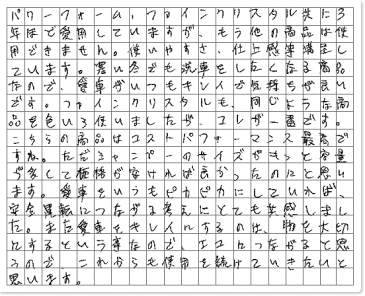 パワーフォーム、ファインクリスタル共に3
年ほど愛用していますが、もう他の商品は使
用できません。使いやすさ、仕上感共満足し
ています。寒い冬でも洗車をしたくなる商品
なので、愛車がいつもキレイで気持ちが良い
です。ファインクリスタルも、同じような商
品を色々使いましたが、コレが一番です。
こちらの商品はコストパフォーマンス最高で
すね。ただシャンプーのサイズがもっと容量
が多くて価格が安ければ良かったのにと思い
ます。愛車をいつもピカピカにしていれば、
安全運転につながる考えにとても共感しまし
た。また愛車をキレイにするのは、物を大切
にするという事なので、エコにつながると思
うので、これからも使用を続けていきたいと
思います。